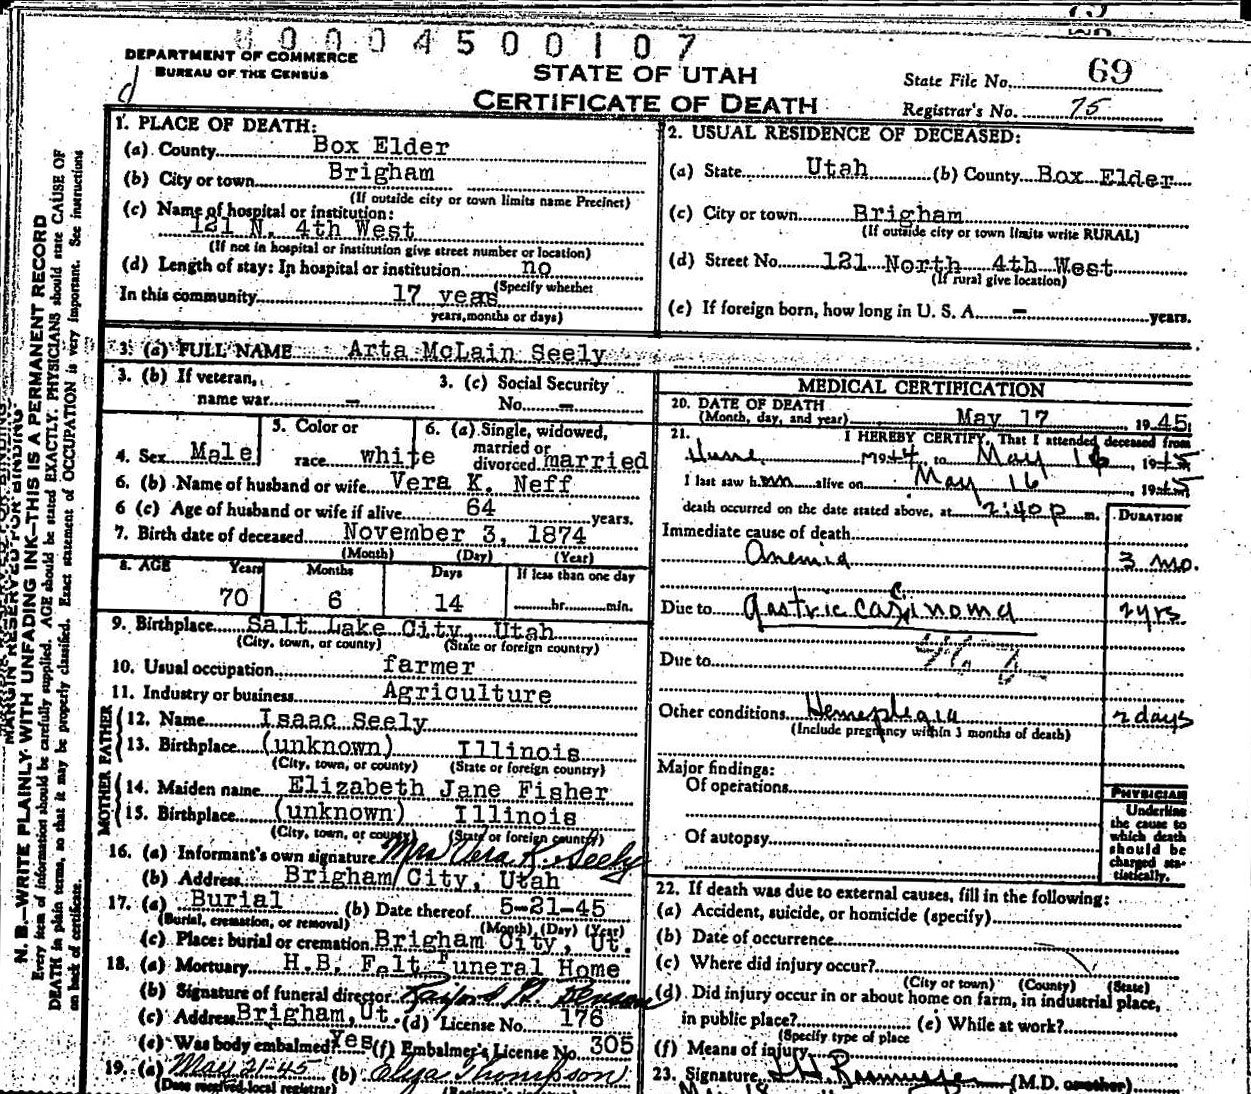 0 0 0 4 5 0 0 1 0 7
DEPARTMENT OF COMMERCE
BUREAU OF THE CENSUS
STATE OF UTAH
CERTIFICATE OF DEATH
State File No. 69
Registrar's No. 75
1. PLACE OF DEATH:
(a) County Box Elder
(b) City or town Brigham
(If outside city or town limits name Precinct)
(c) Name of hospital or institution:
121 N. 4th West
(If not in hospital or institution give street number or location)
(d) Length of stay: In hospital or institution no
(Specify whether
In this community 17 yeas
years, months or days)
2. USUAL RESIDENCE OF DECEASED:
(a) State Utah (b) County Box Elder
(c) City or town Brigham
(If outside city or town limits write RURAL)
(d) Street No. 121 North 4th West
(If rural give location)
(e) If foreign born, how long in U. S. A. — years.
3. (a) FULL NAME Arta McLain Seely
3. (b) If veteran, name war —
3. (c) Social Security No. —
4. Sex Male
5. Color or race white
6. (a) Single, widowed, married or divorced married
6. (b) Name of husband or wife Vera K. Neff
6 (c) Age of husband or wife if alive 64 years.
7. Birth date of deceased November 3, 1874
(Month) (Day) (Year)
8. AGE Years Months Days If less than one day
70 6 14 hr. min.
9. Birthplace Salt Lake City, Utah
(City, town, or county) (State or foreign country)
10. Usual occupation farmer
11. Industry or business Agriculture
FATHER
12. Name Isaac Seely
13. Birthplace (unknown) Illinois
(City, town, or county) (State or foreign country)
MOTHER
14. Maiden name Elizabeth Jane Fisher
15. Birthplace (unknown) Illinois
(City, town, or county) (State or foreign country)
16. (a) Informant's own signature Mrs Vera K. Seely
(b) Address Brigham City, Utah
17. (a) Burial (b) Date thereof 5-21-45
(Burial, cremation, or removal) (Month) (Day) (Year)
(c) Place: burial or cremation Brigham City, Ut.
18. (a) Mortuary H.B. Felt Funeral Home
(b) Signature of funeral director
(c) Address Brigham, Ut. (d) License No. 176
(e) Was body embalmed? Yes (f) Embalmer's License No. 305
19. (a) May 21-45 (b) Eliza Thompson
(Date received local registrar)
MEDICAL CERTIFICATION
20. DATE OF DEATH
(Month, day, and year) May 17, 1945
21. I HEREBY CERTIFY, That I attended deceased from
June 1944 to May 16, 1945
I last saw him alive on May 16 1945
death occurred on the date stated above, at 2:40 p m.
DURATION
Immediate cause of death
Anemia 3 mo.
Due to gastric carcinoma 2 yrs
Due to
Other conditions Hemeplegia 2 days
(Include pregnancy within 3 months of death)
Major findings:
Of operations
Of autopsy
PHYSICIAN
Underline
the cause to
which death
should be
charged sta-
tistically.
22. If death was due to external causes, fill in the following:
(a) Accident, suicide, or homicide (specify)
(b) Date of occurrence
(c) Where did injury occur?
(City or town) (County) (State)
(d) Did injury occur in or about home on farm, in industrial place,
in public place? (e) While at work?
(Specify type of place
(f) Means of injury
23. Signature (M.D. or other)
MARGIN RESERVED FOR BINDING
N. B.—WRITE PLAINLY WITH UNFADING INK—THIS IS A PERMANENT RECORD
Every item of information should be carefully supplied. AGE should be stated EXACTLY. PHYSICIANS should state CAUSE OF
DEATH in plain terms, so that it may be properly classified. Exact statement of OCCUPATION is very important. See instructions
on back of certificate.